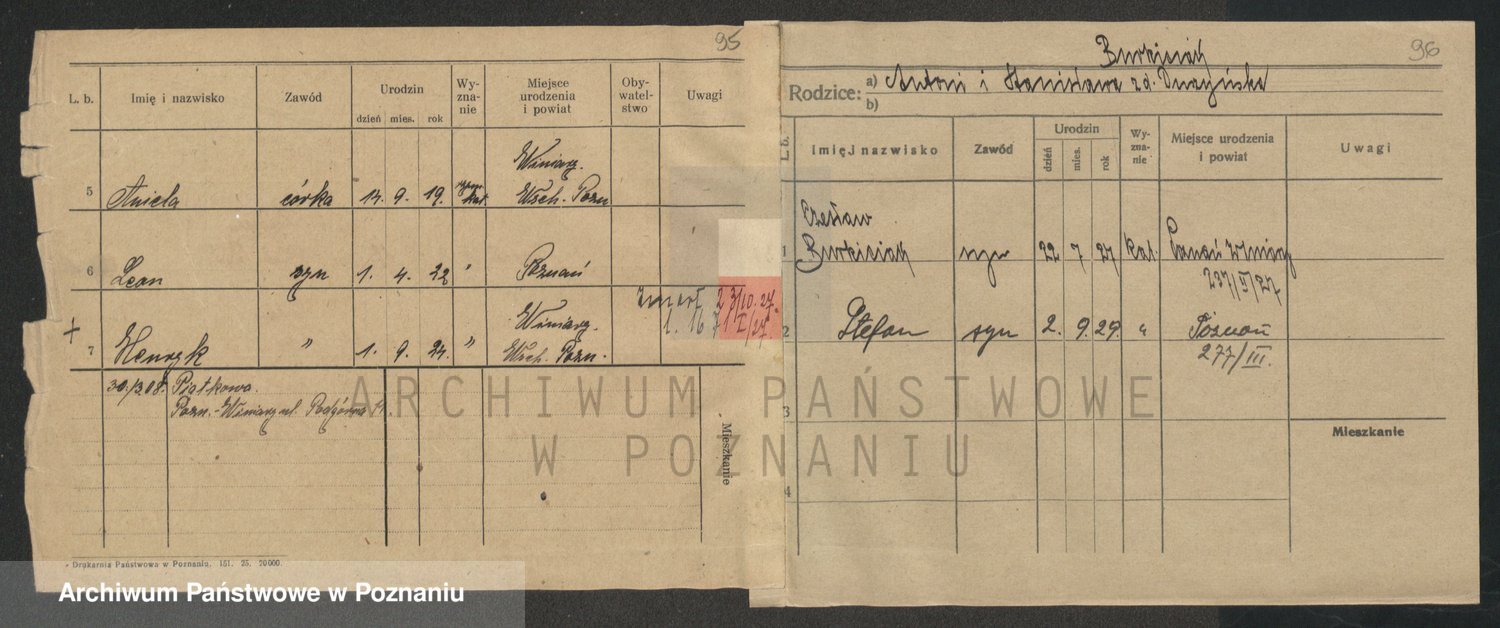 95
L. b. Imię i nazwisko Zawód Urodzin dzień mies. rok Wy-zna-nie Miejsce urodzenia i powiat Oby-watel-stwo Uwagi
Winiary
5 Aniela córka 14. 9. 19. rzym. kat. Wsch. Pozn
6 Leon syn 1. 4. 22 " Poznań
zmarł 23/10.27.
Winiary
+ 7 Henryk " 1. 9. 24. " Wsch. Pozn.
30./3.08. Piątkowa.
Pozn.-Winiary ul. Podgórna
Mieszkanie
Drukarnia Państwowa w Poznaniu, 151. 25. 20000.
96
Rodzice: a) Antoni i Stanisława
b)
L. b. Imię i nazwisko Zawód Urodzin dzień mies. rok Wy-zna-nie Miejsce urodzenia i powiat Uwagi
Czesław
1 syn 22 7 27 kat. Poznań Winiary
237/II/27
2 Stefan syn 2. 9. 29. " Poznań
277/III.
3
Mieszkanie
4
ARCHIWUM PAŃSTWOWE
W POZNANIU
Archiwum Państwowe w Poznaniu